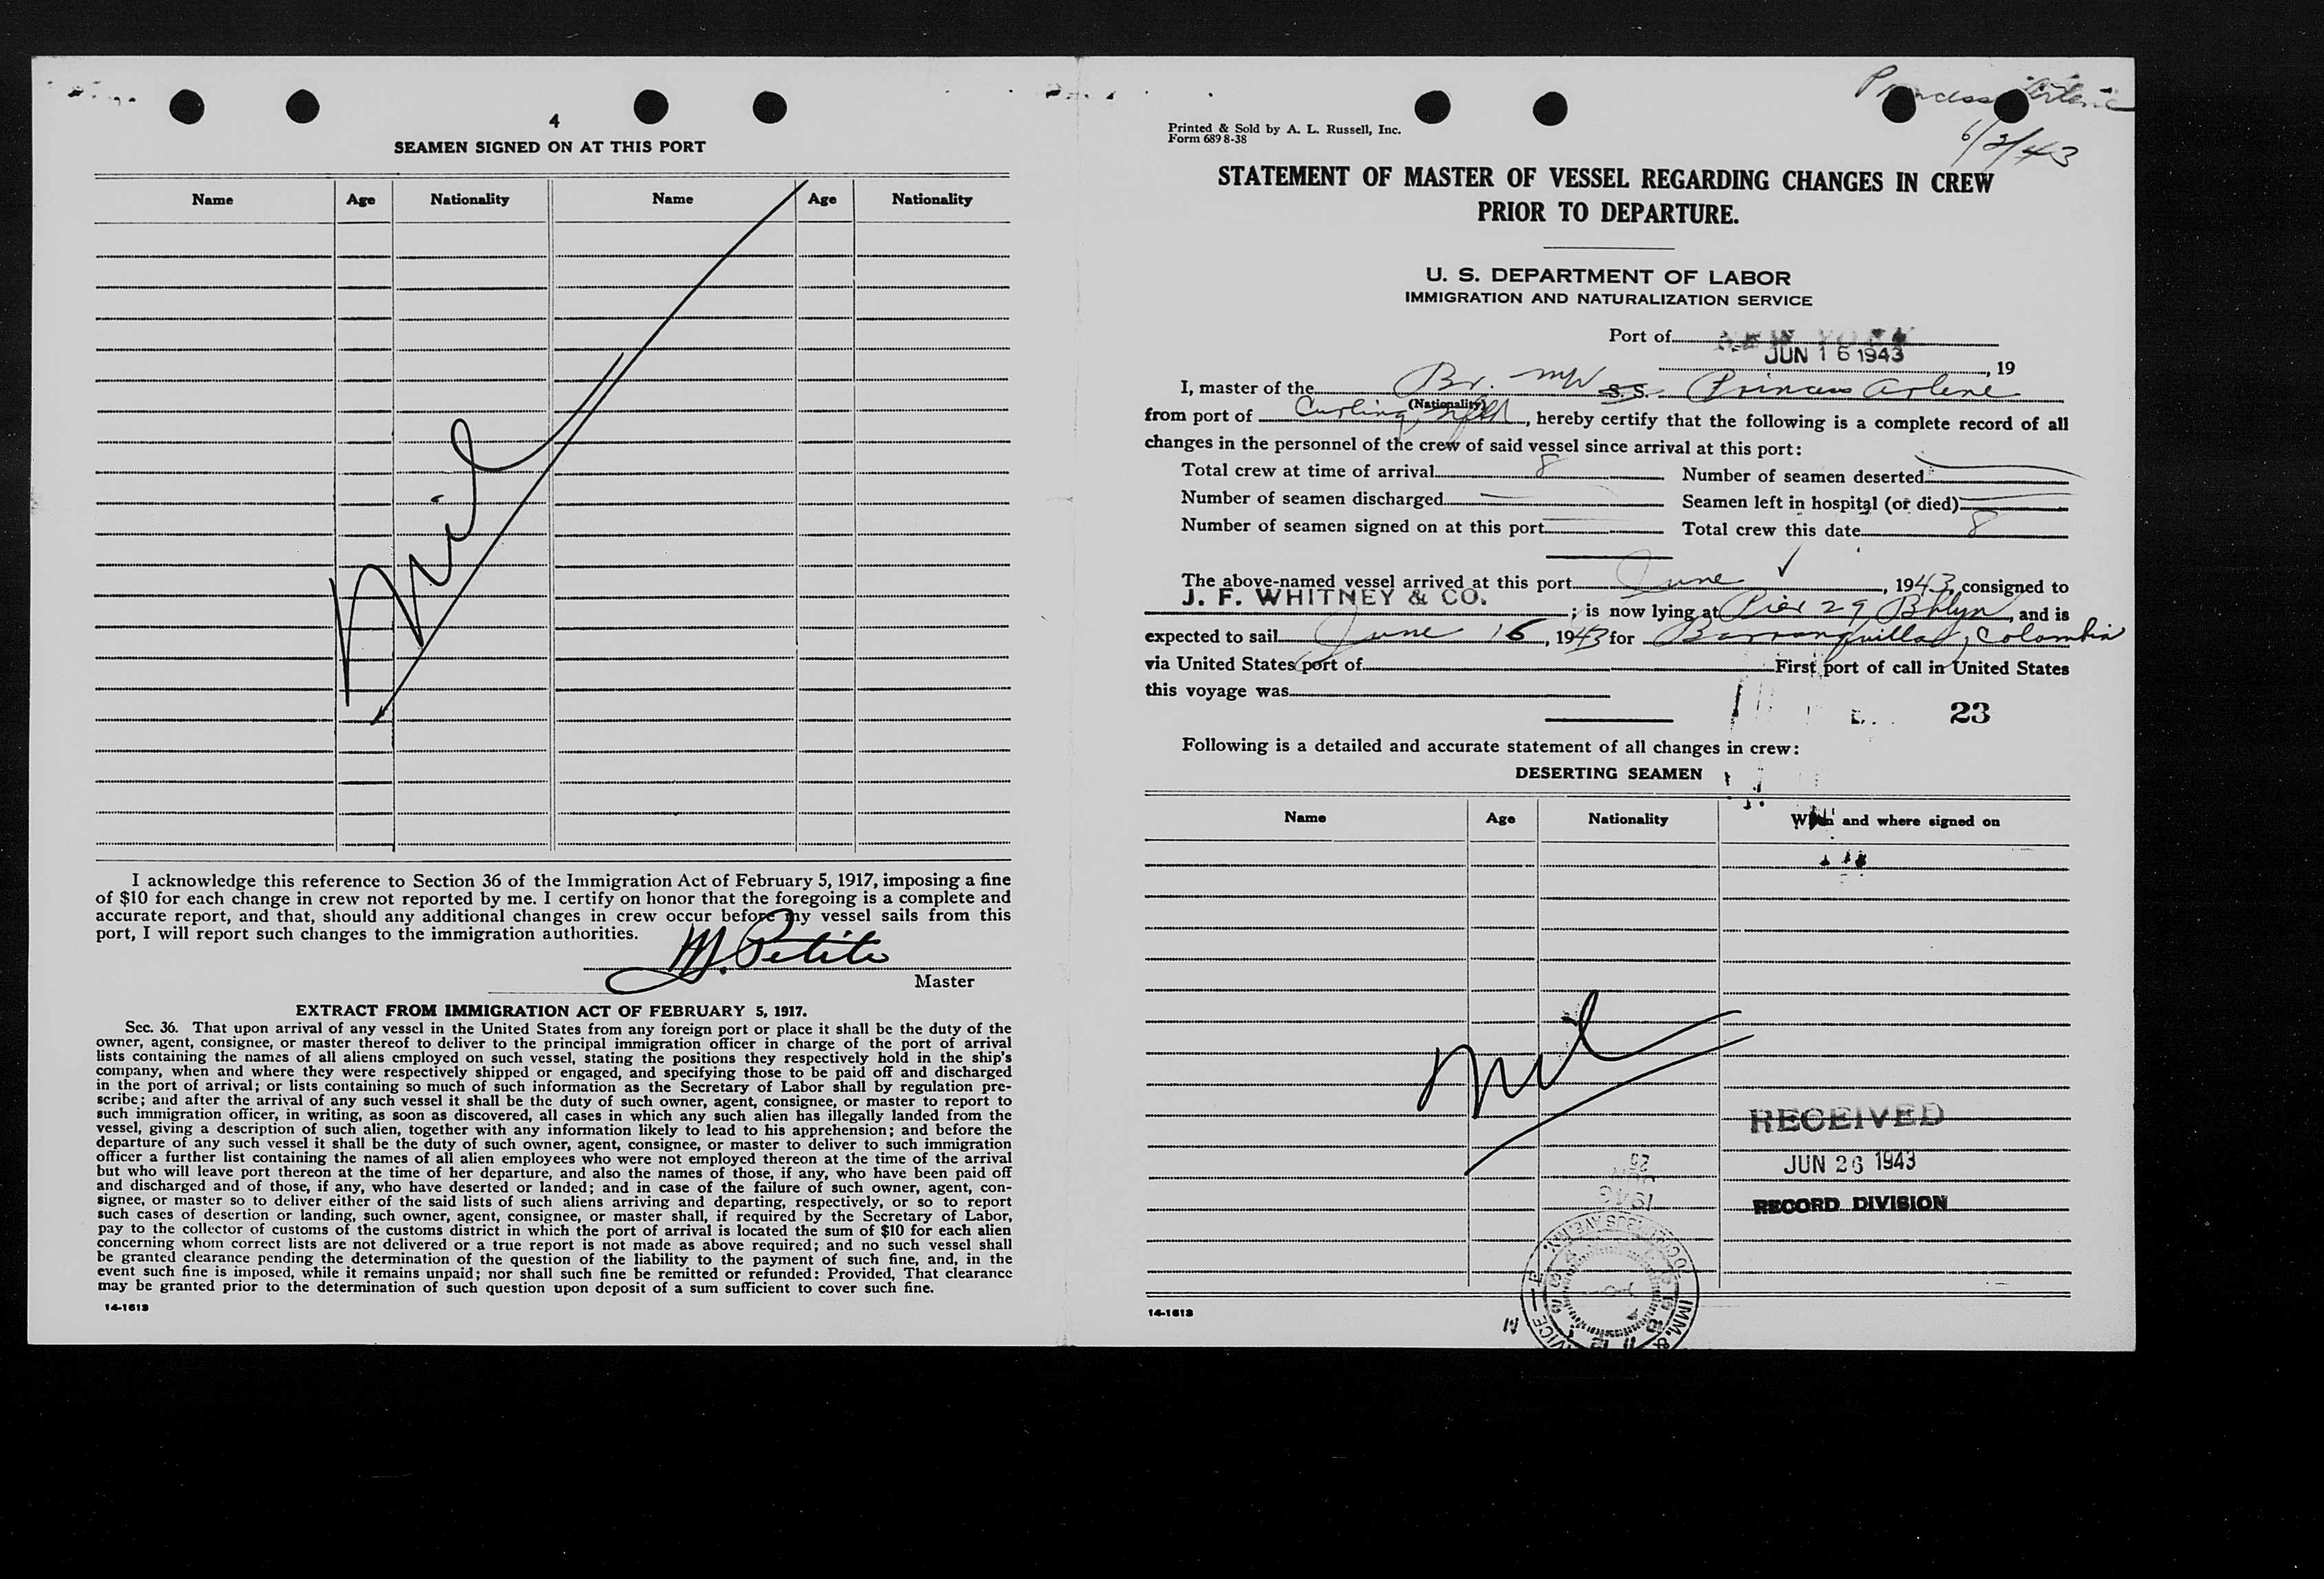 4
SEAMEN SIGNED ON AT THIS PORT
Name Age Nationality Name Age Nationality
Nil
I acknowledge this reference to Section 36 of the Immigration Act of February 5, 1917, imposing a fine
of $10 for each change in crew not reported by me. I certify on honor that the foregoing is a complete and
accurate report, and that, should any additional changes in crew occur before my vessel sails from this
port, I will report such changes to the immigration authorities.
M. Petite
Master
EXTRACT FROM IMMIGRATION ACT OF FEBRUARY 5, 1917.
Sec. 36. That upon arrival of any vessel in the United States from any foreign port or place it shall be the duty of the
owner, agent, consignee, or master thereof to deliver to the principal immigration officer in charge of the port of arrival
lists containing the names of all aliens employed on such vessel, stating the positions they respectively hold in the ship's
company, when and where they were respectively shipped or engaged, and specifying those to be paid off and discharged
in the port of arrival; or lists containing so much of such information as the Secretary of Labor shall by regulation pre-
scribe; and after the arrival of any such vessel it shall be the duty of such owner, agent, consignee, or master to report to
such immigration officer, in writing, as soon as discovered, all cases in which any such alien has illegally landed from the
vessel, giving a description of such alien, together with any information likely to lead to his apprehension; and before the
departure of any such vessel it shall be the duty of such owner, agent, consignee, or master to deliver to such immigration
officer a further list containing the names of all alien employees who were not employed thereon at the time of the arrival
but who will leave port thereon at the time of her departure, and also the names of those, if any, who have been paid off
and discharged and of those, if any, who have deserted or landed; and in case of the failure of such owner, agent, con-
signee, or master so to deliver either of the said lists of such aliens arriving and departing, respectively, or so to report
such cases of desertion or landing, such owner, agent, consignee, or master shall, if required by the Secretary of Labor,
pay to the collector of customs of the customs district in which the port of arrival is located the sum of $10 for each alien
concerning whom correct lists are not delivered or a true report is not made as above required; and no such vessel shall
be granted clearance pending the determination of the question of the liability to the payment of such fine, and, in the
event such fine is imposed, while it remains unpaid; nor shall such fine be remitted or refunded: Provided, That clearance
may be granted prior to the determination of such question upon deposit of a sum sufficient to cover such fine.
14-1613
Princess Arlene
6/2/43
Printed & Sold by A. L. Russell, Inc.
Form 689 8-38
STATEMENT OF MASTER OF VESSEL REGARDING CHANGES IN CREW
PRIOR TO DEPARTURE.
U. S. DEPARTMENT OF LABOR
IMMIGRATION AND NATURALIZATION SERVICE
Port of NEW YORK
JUN 16 1943, 19
I, master of the Br. M/V S. S. Princess Arlene
(Nationality)
from port of Curling, Nfld, hereby certify that the following is a complete record of all
changes in the personnel of the crew of said vessel since arrival at this port:
Total crew at time of arrival 8 Number of seamen deserted
Number of seamen discharged Seamen left in hospital (or died)
Number of seamen signed on at this port Total crew this date 8
The above-named vessel arrived at this port June, 1943, consigned to
J. F. WHITNEY & CO.; is now lying at Pier 29 Bklyn, and is
expected to sail June 16, 1943 for Barranquilla, Colombia
via United States port of First port of call in United States
this voyage was
23
Following is a detailed and accurate statement of all changes in crew:
DESERTING SEAMEN
Name Age Nationality When and where signed on
Nil
RECEIVED
JUN 26 1943
RECORD DIVISION
14-1613